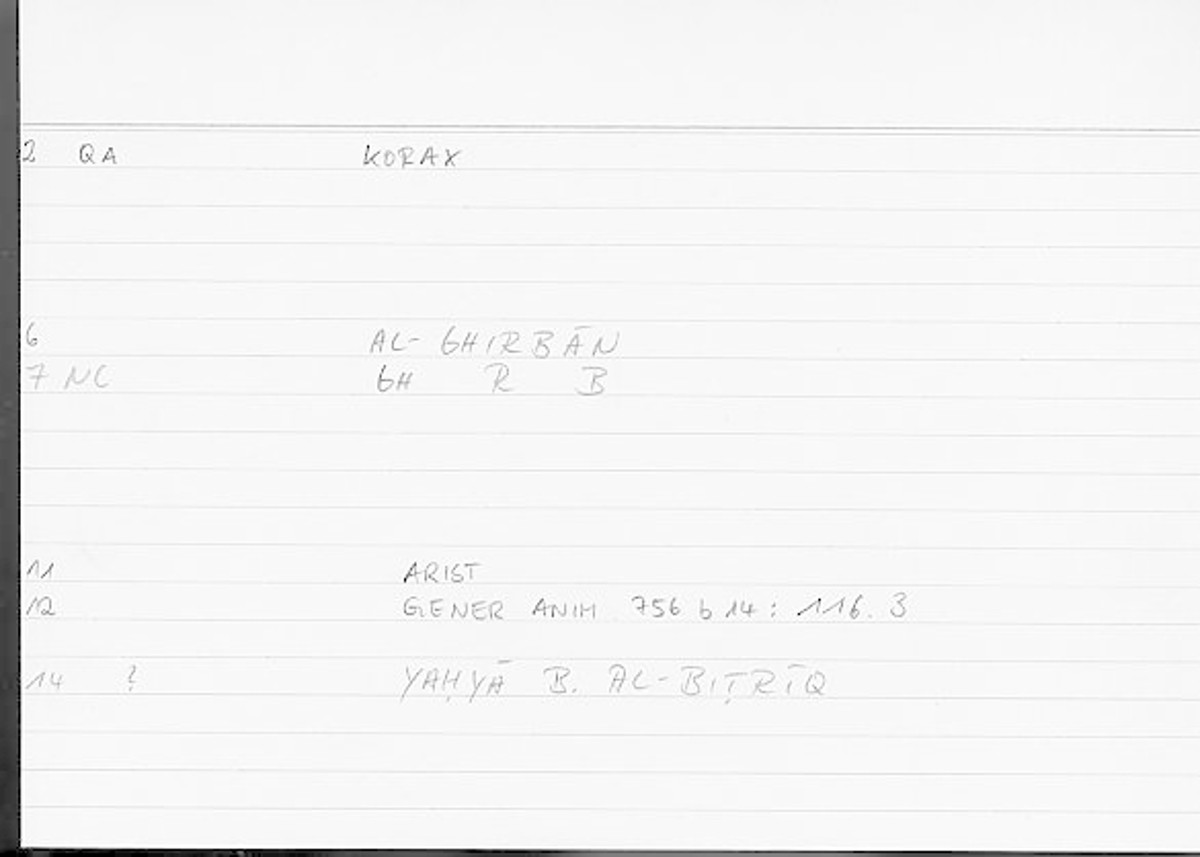 2 QA KORAX
6 AL-GHIRBĀN
7 NC GH R B
11 ARIST
12 GENER ANIM 756 b 14 : 116. 3
14 ? YAḤYĀ B. AL-BIṬRĪQ